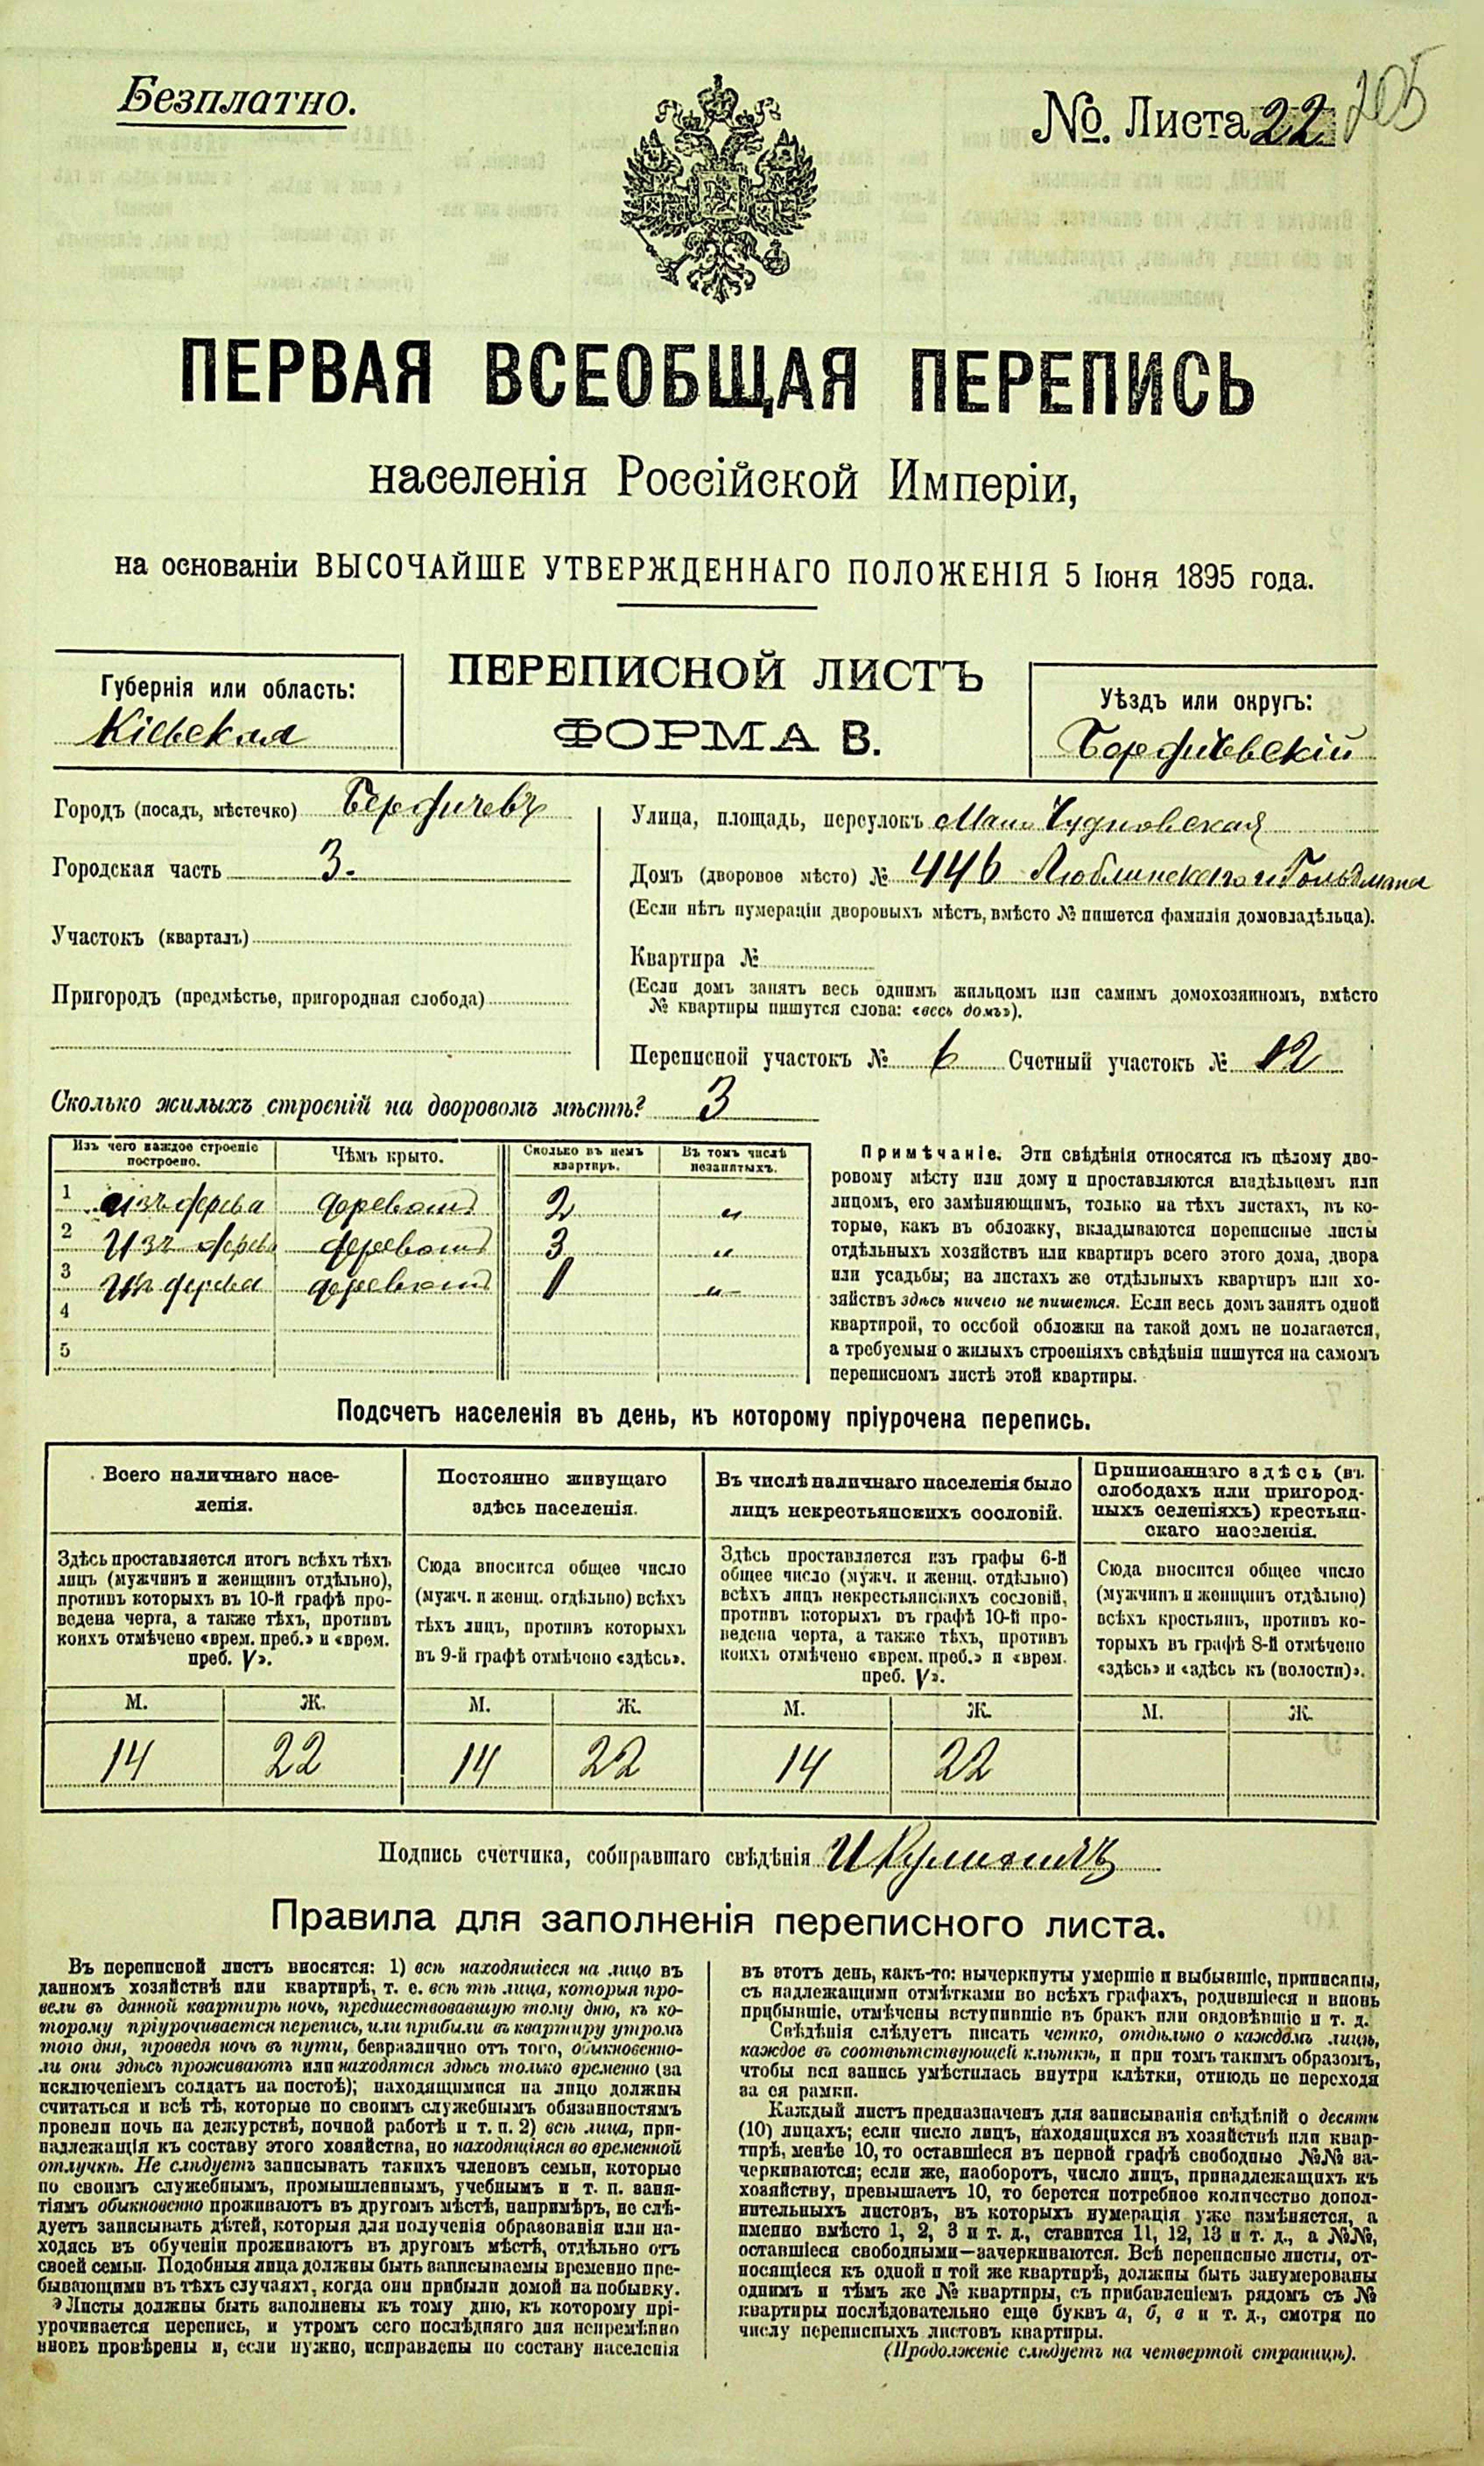 Безплатно.
№. Листа 22
205
ПЕРВАЯ ВСЕОБЩАЯ ПЕРЕПИСЬ
населенія Россійской Имперіи,
на основаніи ВЫСОЧАЙШЕ УТВЕРЖДЕННАГО ПОЛОЖЕНІЯ 5 Іюня 1895 года.
Губернія или область:
Кіевская
ПЕРЕПИСНОЙ ЛИСТЪ
ФОРМА В.
Уѣздъ или округъ:
Бердичевскій
Городъ (посадъ, мѣстечко) Бердичевъ
Городская часть 3.
Участокъ (кварталъ)
Пригородъ (предмѣстье, пригородная слобода)
Улица, площадь, переулокъ Мал. Чудновская
Домъ (дворовое мѣсто) № 446 Люблинскаго и Гольдмана
(Если нѣтъ нумераціи дворовыхъ мѣстъ, вмѣсто № пишется фамилія домовладѣльца).
Квартира №
(Если домъ занятъ весь однимъ жильцомъ или самимъ домохозяиномъ, вмѣсто
№ квартиры пишутся слова: «весь домъ»).
Переписной участокъ № 6 Счетный участокъ № 12
Сколько жилыхъ строеній на дворовомъ мѣстѣ? 3
Изъ чего каждое строеніе построено.
Чѣмъ крыто.
Сколько въ немъ квартиръ.
Въ томъ числѣ незанятыхъ.
1 изъ дерева деревомъ 2 „
2 Изъ дерева деревомъ 3 „
3 Изъ дерева деревомъ 1 „
4
5
Примѣчаніе. Эти свѣдѣнія относятся къ цѣлому дво-
ровому мѣсту или дому и проставляются владѣльцемъ или
лицомъ, его замѣняющимъ, только на тѣхъ листахъ, въ ко-
торые, какъ въ обложку, вкладываются переписные листы
отдѣльныхъ хозяйствъ или квартиръ всего этого дома, двора
или усадьбы; на листахъ же отдѣльныхъ квартиръ или хо-
зяйствъ здѣсь ничего не пишется. Если весь домъ занятъ одной
квартирой, то особой обложки на такой домъ не полагается,
а требуемыя о жилыхъ строеніяхъ свѣдѣнія пишутся на самомъ
переписномъ листѣ этой квартиры.
Подсчетъ населенія въ день, къ которому пріурочена перепись.
Всего наличнаго насе-
ленія.
Здѣсь проставляется итогъ всѣхъ тѣхъ
лицъ (мужчинъ и женщинъ отдѣльно),
противъ которыхъ въ 10-й графѣ про-
ведена черта, а также тѣхъ, противъ
коихъ отмѣчено «врем. преб.» и «врем.
преб. V».
Постоянно живущаго
здѣсь населенія.
Сюда вносится общее число
(мужч. и женщ. отдѣльно) всѣхъ
тѣхъ лицъ, противъ которыхъ
въ 9-й графѣ отмѣчено «здѣсь».
Въ числѣ наличнаго населенія было
лицъ некрестьянскихъ сословій.
Здѣсь проставляется изъ графы 6-й
общее число (мужч. и женщ. отдѣльно)
всѣхъ лицъ некрестьянскихъ сословій,
противъ которыхъ въ графѣ 10-й про-
ведена черта, а также тѣхъ, противъ
коихъ отмѣчено «врем. преб.» и «врем.
преб. V».
Приписаннаго здѣсь (въ
слободахъ или пригород-
ныхъ селеніяхъ) крестьян-
скаго населенія.
Сюда вносится общее число
(мужчинъ и женщинъ отдѣльно)
всѣхъ крестьянъ, противъ ко-
торыхъ въ графѣ 8-й отмѣчено
«здѣсь» и «здѣсь къ (волости)».
М. Ж. М. Ж. М. Ж. М. Ж.
14 22 14 22 14 22
Подпись счетчика, собиравшаго свѣдѣнія
Правила для заполненія переписного листа.
Въ переписной листъ вносятся: 1) всѣ находящіеся на лицо въ
данномъ хозяйствѣ или квартирѣ, т. е. всѣ тѣ лица, которыя про-
вели въ данной квартирѣ ночь, предшествовавшую тому дню, къ ко-
торому пріурочивается перепись, или прибыли въ квартиру утромъ
того дня, проведя ночь въ пути, безразлично отъ того, обыкновенно-
ли они здѣсь проживаютъ или находятся здѣсь только временно (за
исключеніемъ солдатъ на постоѣ); находящимися на лицо должны
считаться и всѣ тѣ, которые по своимъ служебнымъ обязанностямъ
провели ночь на дежурствѣ, ночной работѣ и т. п. 2) всѣ лица, при-
надлежащія къ составу этого хозяйства, но находящіяся во временной
отлучкѣ. Не слѣдуетъ записывать такихъ членовъ семьи, которые
по своимъ служебнымъ, промышленнымъ, учебнымъ и т. п. заня-
тіямъ обыкновенно проживаютъ въ другомъ мѣстѣ, напримѣръ, не слѣ-
дуетъ записывать дѣтей, которыя для полученія образованія или на-
ходясь въ обученіи проживаютъ въ другомъ мѣстѣ, отдѣльно отъ
своей семьи. Подобныя лица должны быть записываемы временно пре-
бывающими въ тѣхъ случаяхъ, когда они прибыли домой на побывку.
Листы должны быть заполнены къ тому дню, къ которому прі-
урочивается перепись, и утромъ сего послѣдняго дня непремѣнно
вновь провѣрены и, если нужно, исправлены по составу населенія
въ этотъ день, какъ-то: вычеркнуты умершіе и выбывшіе, приписаны,
съ надлежащими отмѣтками во всѣхъ графахъ, родившіеся и вновь
прибывшіе, отмѣчены вступившіе въ бракъ или овдовѣвшіе и т. д.
Свѣдѣнія слѣдуетъ писать четко, отдѣльно о каждомъ лицѣ,
каждое въ соотвѣтствующей клѣткѣ, и при томъ такимъ образомъ,
чтобы вся запись умѣстилась внутри клѣтки, отнюдь не переходя
за ея рамки.
Каждый листъ предназначенъ для записыванія свѣдѣній о десяти
(10) лицахъ; если число лицъ, находящихся въ хозяйствѣ или квар-
тирѣ, менѣе 10, то оставшіеся въ первой графѣ свободные №№ за-
черкиваются; если же, наоборотъ, число лицъ, принадлежащихъ къ
хозяйству, превышаетъ 10, то берется потребное количество допол-
нительныхъ листовъ, въ которыхъ нумерація уже измѣняется, а
именно вмѣсто 1, 2, 3 и т. д., ставится 11, 12, 13 и т. д., а №№,
оставшіеся свободными—зачеркиваются. Всѣ переписные листы, от-
носящіеся къ одной и той же квартирѣ, должны быть занумерованы
однимъ и тѣмъ же № квартиры, съ прибавленіемъ рядомъ съ №
квартиры послѣдовательно еще буквъ а, б, в и т. д., смотря по
числу переписныхъ листовъ квартиры.
(Продолженіе слѣдуетъ на четвертой страницѣ).